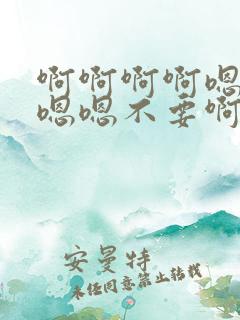 啊啊啊啊嗯
嗯嗯不要啊
安曼特
未经同意禁止转载